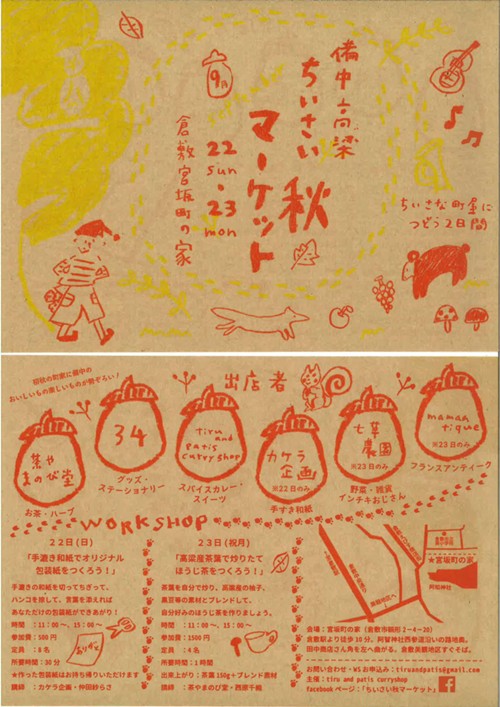 備中高梁
ちいさい
秋
マーケット
9月
22
sun
・
23
mon
倉敷宮坂町の家
ちいさな町屋に
つどう2日間
倉敷の町家に備中の
おいしいもの楽しいものが勢ぞろい!
出店者
茶や
まのび堂
お茶・ハーブ
34
グッズ・
ステーショナリー
tiru
and
patis
curry shop
スパイスカレー・
スイーツ
カケラ
企画
※22日のみ
手すき和紙
七草
農園
※23日のみ
野菜・雑貨
インチキおじさん
maman
tique
※23日のみ
フランスアンティーク
WORKSHOP
22日(日)
「手漉き和紙でオリジナル
包装紙をつくろう!」
手漉きの和紙を切ってちぎって、
ハンコを捺して、言葉を添えれば
あなただけの包装紙ができあがり!
時間 : 11:00~、15:00~
参加費 : 500円
定員 : 8名
所要時間 : 30分
★作った包装紙はお持ち帰りいただけます
講師 : カケラ企画・仲田紗らさ
ありがとう
23日(祝月)
「高梁産茶葉で炒りたて
ほうじ茶をつくろう!」
茶葉を自分で炒り、高梁産の柚子、
黒豆等の素材とブレンドして、
自分好みのほうじ茶を作りましょう。
時間 : 11:00~、15:00~
参加費 : 1500円
定員 : 4名
所要時間 : 1時間
出来上がり : 茶葉150g+ブレンド素材
講師 : 茶やまのび堂・西原千織
★宮坂町の家
阿知神社
会場 : 宮坂町の家(倉敷市鶴形2-4-20)
倉敷駅より徒歩10分、阿智神社西参道沿いの路地奥。
田中商店さん角を左へ曲がる、倉敷美観地区すぐそば。
お問い合わせ・WSお申込み : tiruandpatis@gmail.com
主催 : tiru and patis curryshop
facebookページ : 「ちいさい秋マーケット」